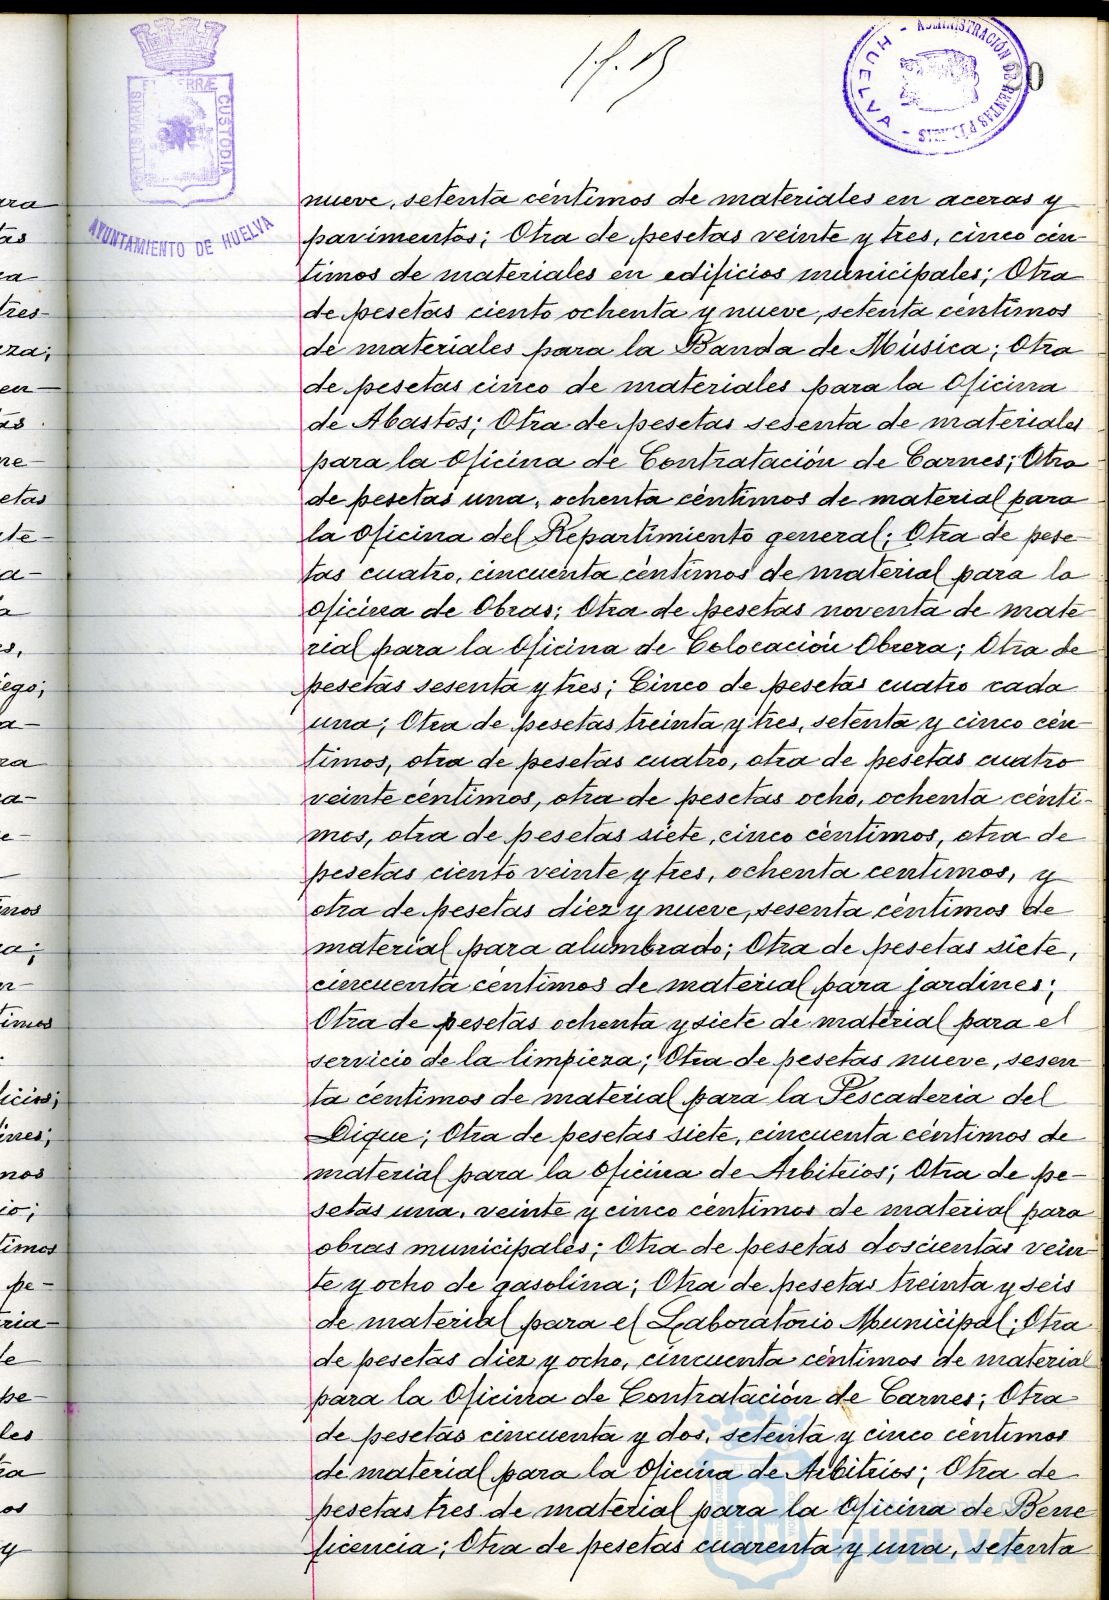 PORTUS MARIS ET TERRÆ CUSTODIA
AYUNTAMIENTO DE HUELVA
ADMINISTRACIÓN DE RENTAS PÚBLICAS - HUELVA -
nueve, setenta céntimos de materiales en aceras y
pavimentos; Otra de pesetas veinte y tres, cinco cén-
timos de materiales en edificios municipales; Otra
de pesetas ciento ochenta y nueve, setenta céntimos
de materiales para la Banda de Música; Otra
de pesetas cinco de materiales para la Oficina
de Abastos; Otra de pesetas sesenta de materiales
para la Oficina de Contratación de Carnes; Otra
de pesetas una, ochenta céntimos de material para
la Oficina del Repartimiento general; Otra de pese-
tas cuatro, cincuenta céntimos de material para la
Oficina de Obras; Otra de pesetas noventa de mate-
rial para la Oficina de Colocación Obrera; Otra de
pesetas sesenta y tres; Cinco de pesetas cuatro cada
una; Otra de pesetas treinta y tres, setenta y cinco cén-
timos, otra de pesetas cuatro, otra de pesetas cuatro
veinte céntimos, otra de pesetas ocho, ochenta cénti-
mos, otra de pesetas siete, cinco céntimos, otra de
pesetas ciento veinte y tres, ochenta centimos, y
otra de pesetas diez y nueve, sesenta céntimos de
material para alumbrado; Otra de pesetas siete,
cincuenta céntimos de material para jardines;
Otra de pesetas ochenta y siete de material para el
servicio de la limpieza; Otra de pesetas nueve, sesen-
ta céntimos de material para la Pescaderia del
Dique; Otra de pesetas siete, cincuenta céntimos de
material para la Oficina de Arbitrios; Otra de pe-
setas una, veinte y cinco céntimos de material para
obras municipales; Otra de pesetas doscientas vein-
te y ocho de gasolina; Otra de pesetas treinta y seis
de material para el Laboratorio Municipal; Otra
de pesetas diez y ocho, cincuenta céntimos de material
para la Oficina de Contratación de Carnes; Otra
de pesetas cincuenta y dos, setenta y cinco céntimos
de material para la Oficina de Arbitrios; Otra de
pesetas tres de material para la Oficina de Bene
ficencia; Otra de pesetas cuarenta y una, setenta
HUELVA